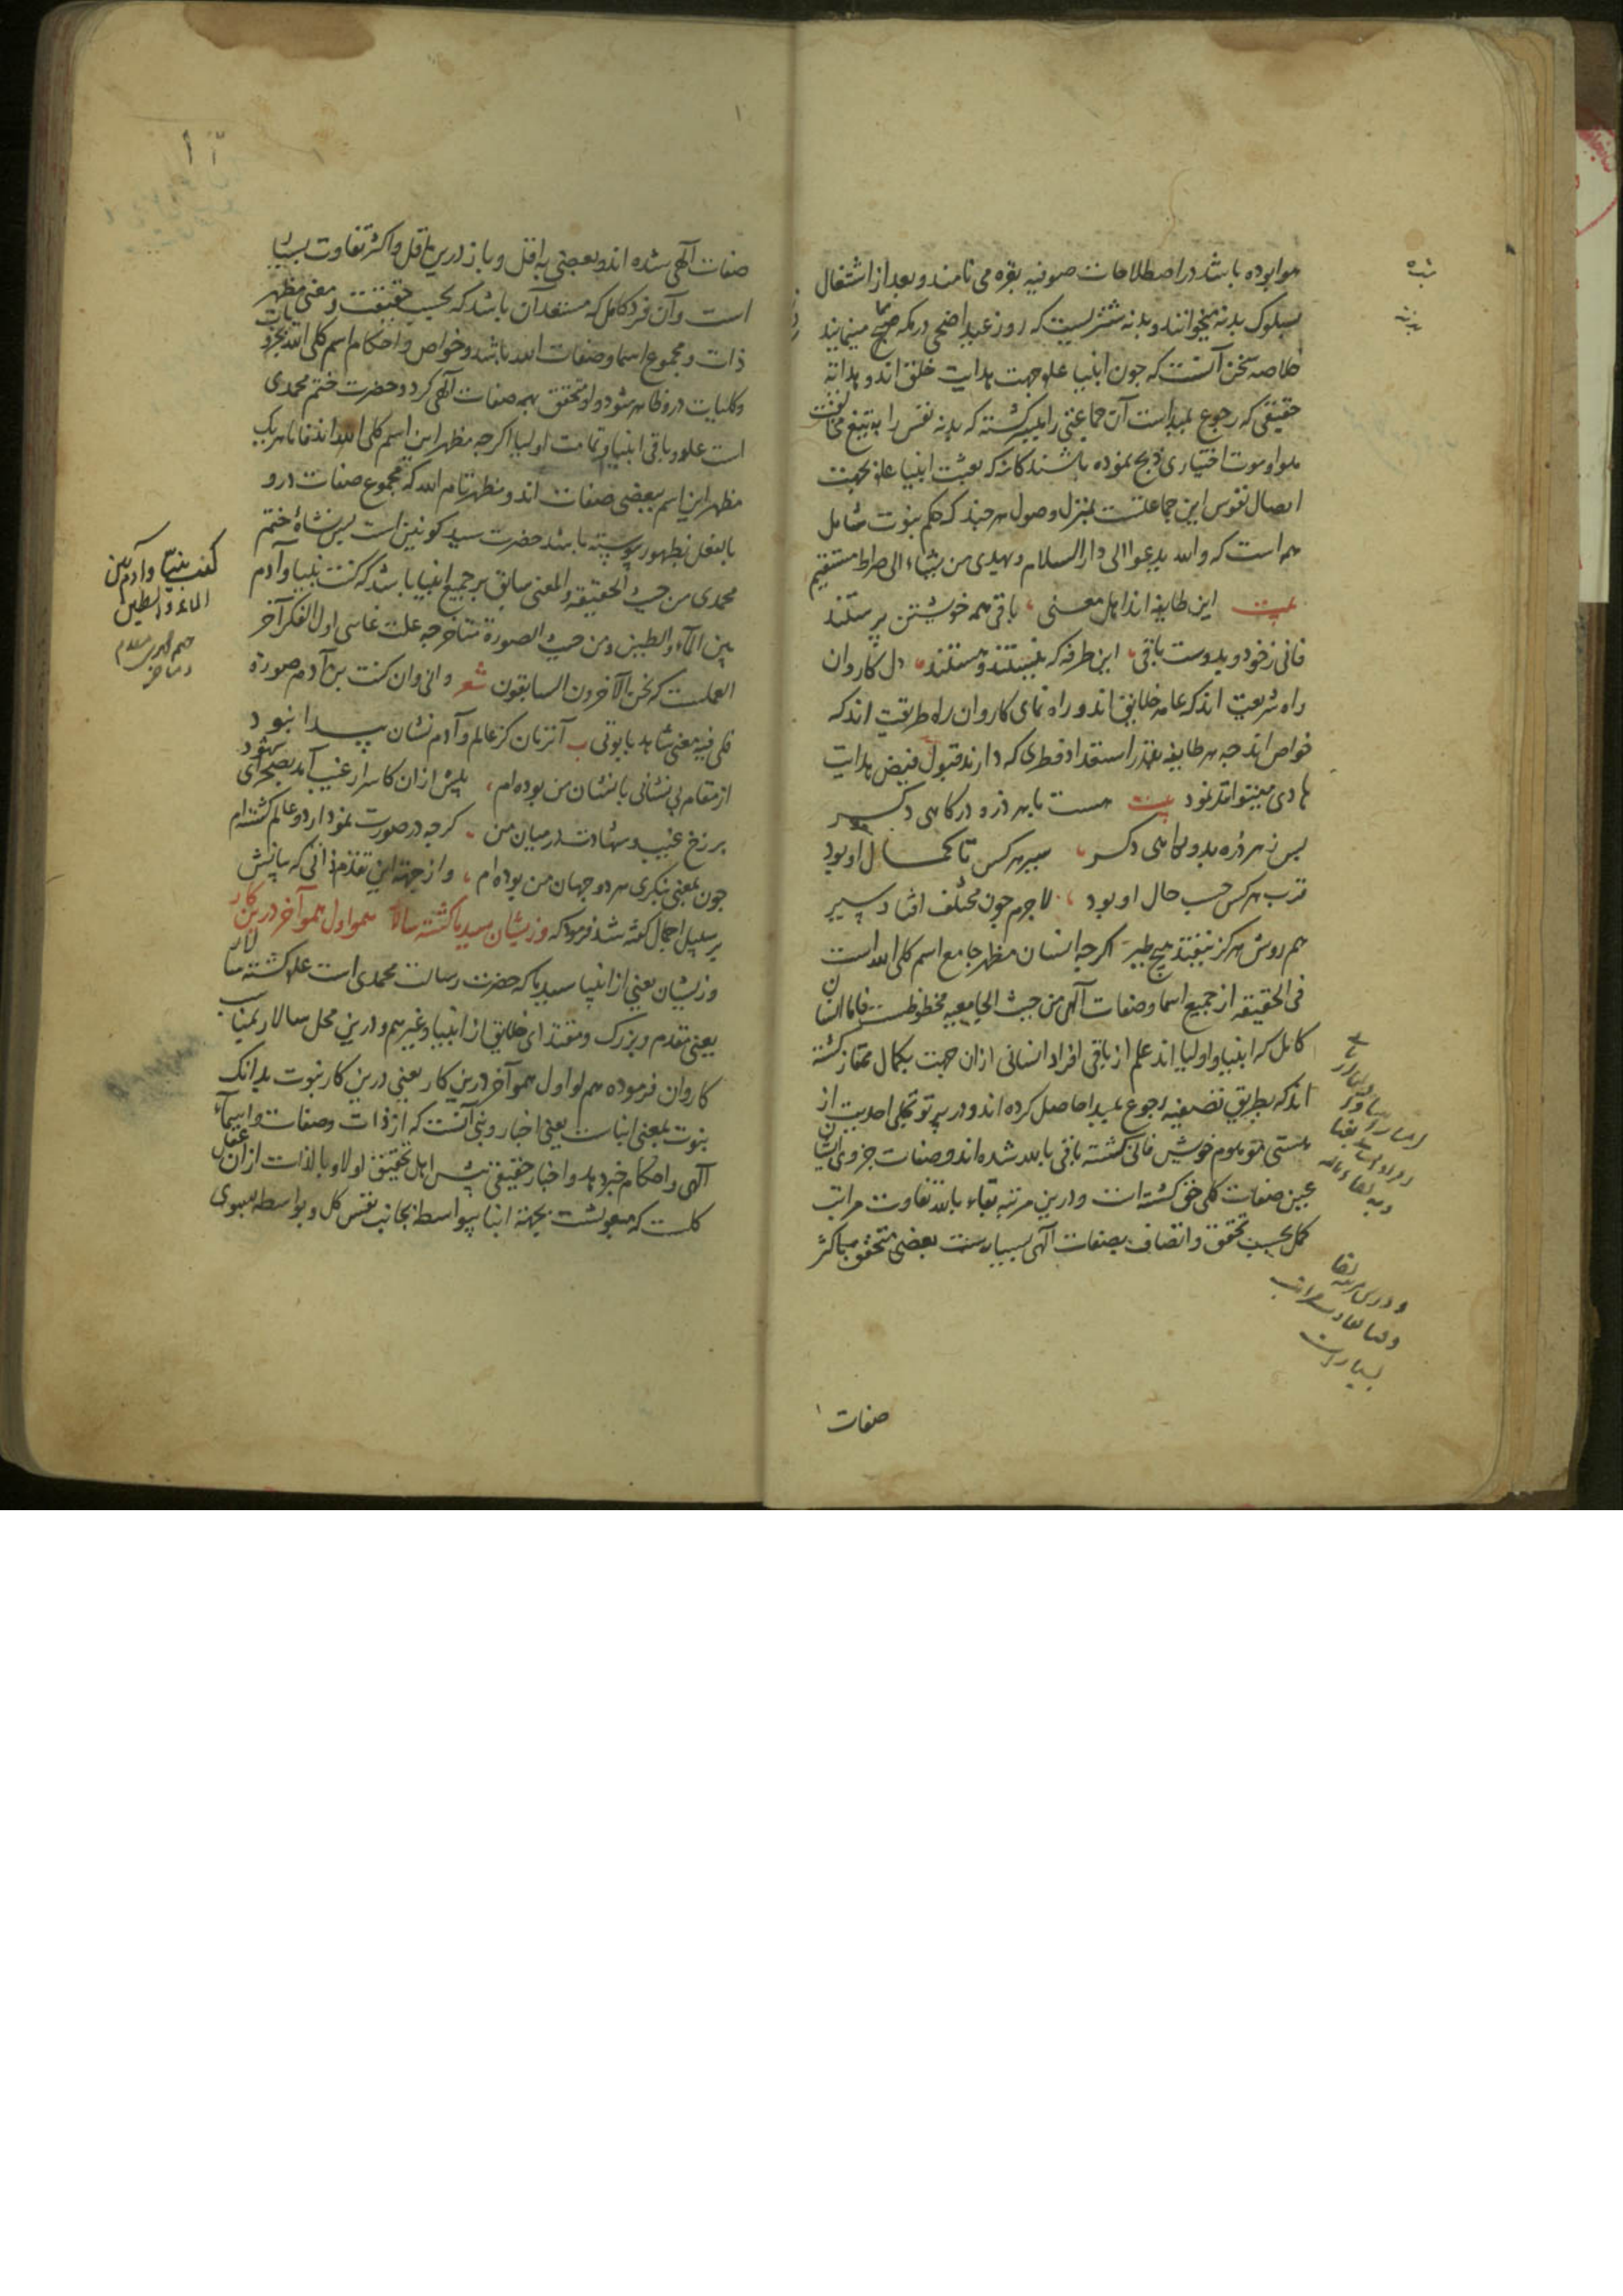 هوا بوده باشد در اصطلاحات صوفیه بقره می نامند و بعد از اشتغال
بسلوک بدنه میخوانند و بدنه شتریست که روز عید اضحی در مکه می نمایند
خلاصه سخن آنست که جون انبیا علم جهت هدایت خلق اند و هدایة
حقیقی که رجوع بمبدا است آن جماعتی را میسر کشته که بدنه نفس را به تیغ مخالفت
هوا و موت اختیاری ذبح نموده باشند کانه که بعثت انبیا علم بجهت
ایصال نفوس این جماعتست بمنزل وصول هر جند که حکم نبوت شامل
همه است که والله یدعوا الی دار السلام و یهدی من یشاء الی صراط مستقیم
بیت این طایفه اند اهل معنی باقی همه خویشتن پرستند
فانی ز خود و بدوست باقی این طرفه که نیستند و هستند دل کاروان
راه شریعت اند که عامه خلایق اند و راه نمای کاروان راه طریقت اند که
خواص اند جه هر طایفه بقدر استعداد فطری که دارند قبول فیض هدایت
هادی میتوانند نمود بیت هست با هر ذره درکاهی دکر
بس ز هر ذره بدو راهی دکر سیر هر کس تا کمال او بود
قرب هر کس حسب حال او بود لاجرم جون مختلف افتاد سیر
هم روش هرکز نیفتد هیچ طیر اکرجه انسان مظهر جامع اسم کلی الله است
فی الحقیقه از جمیع اسما و صفات آلهی من حیث الجامعیه محظوظست فاما انسان
کامل که انبیا و اولیا اند علم از باقی افراد انسانی ازان جهت بکمال ممتاز کشته
اند که بطریق تصفیه رجوع بمبدا حاصل کرده اند و در پرتو تجلی احدیت از
هستی موهوم خویش فانی کشته باقی بالله شده اند و صفات جزوی ایشان
عین صفات کلی حق کشته است و درین مرتبه بقاء بالله تفاوت مراتب
کمل بحسب تحقق و اتصاف بصفات آلهی بسیارست بعضی متحقق باکثر
صفات
بدنه
صفات آلهی شده اند و بعضی به اقل و باز درین اقل و اکثر تفاوت بسیار
است و آن فرد کامل که مستعد آن باشد که بحسب حقیقت و معنی مظهر
ذات و مجموع اسما و صفات الله باشد و خواص و احکام اسم کلی الله بجزویات
و کلیات در و ظاهر شود و او متحقق بهمه صفات آلهی کردد حضرت ختم محمدی
است علم و باقی انبیا و تمامت اولیا اکرجه مظهر این اسم کلی الله اند فاما هر یک
مظهر این اسم ببعضی صفات اند و مظهر تام الله که مجموع صفات درو
بالفعل بظهور پیوسته باشد حضرت سید کونین است بس نشاة ختم
محمدی من حیث الحقیقه و المعنی سابق بر جمیع انبیا باشد که کنت نبیا و آدم
بین الماء و الطین و من حیث الصورة متاخر جه علت غایی اول الفکر آخر
العملست که نحن الآخرون السابقون شعر وانی وان کنت بن آدم صورة
فلی فیه معنی شاهد بابوتی ب آنزمان کز عالم و آدم نشان پیدا نبود
از مقام بی نشانی بانشان من بوده ام بیش ازان کاسرار غیب آمد بصحرای شهود
برزخ غیب و شهادت در میان من کرجه در صورت نمودار دو عالم کشته ام
جون بمعنی بنکری هر دو جهان من بوده ام و از جهة این تقدم ذاتی که بیانش
بر سبیل اجمال کفته شد فرمود که وزیشان سید ما کشته سالار هم او اول هم او آخر درین کار
وزیشان یعنی از انبیا سید ما که حضرت رسالت محمدی است علم کشته سالار
یعنی مقدم و بزرک و مقتدای خلایق از انبیا و غیرهم و درین محل سالار بمناسب
کاروان فرموده هم او اول هم او آخر درین کار یعنی درین کار نبوت بدانک
نبوت بمعنی انباست یعنی اخبار و نبی آنست که از ذات و صفات و اسماء
آلهی و احکام خبر دهد و اخبار حقیقی بیش اهل تحقیق اولا و بالذات ازان عقل
کلست که مبعوثست بجهة انبا بیواسطه بجانب نفس کل و بواسطه بسوی
کنت نبیا و آدم بین
الماء و الطین